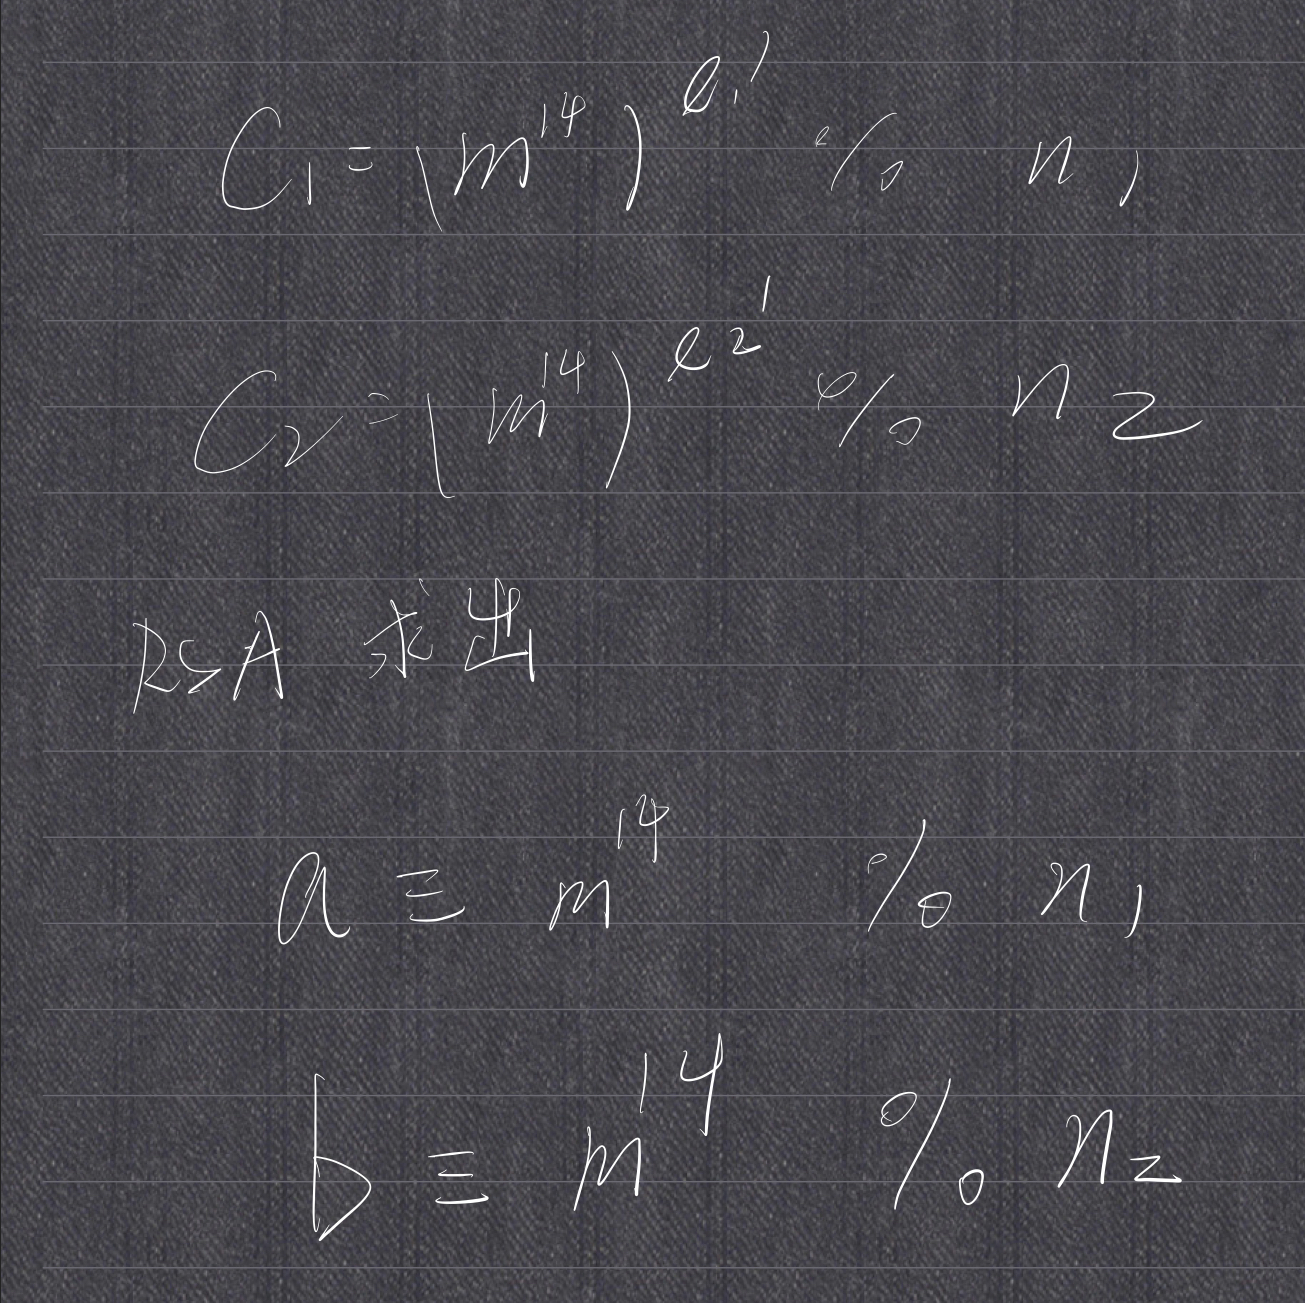 C₁ = (m¹⁴)^e₁' % n₁
C₂ = (m¹⁴)^e₂' % n₂
RSA 求出
a ≡ m¹⁴ % n₁
b ≡ m¹⁴ % n₂